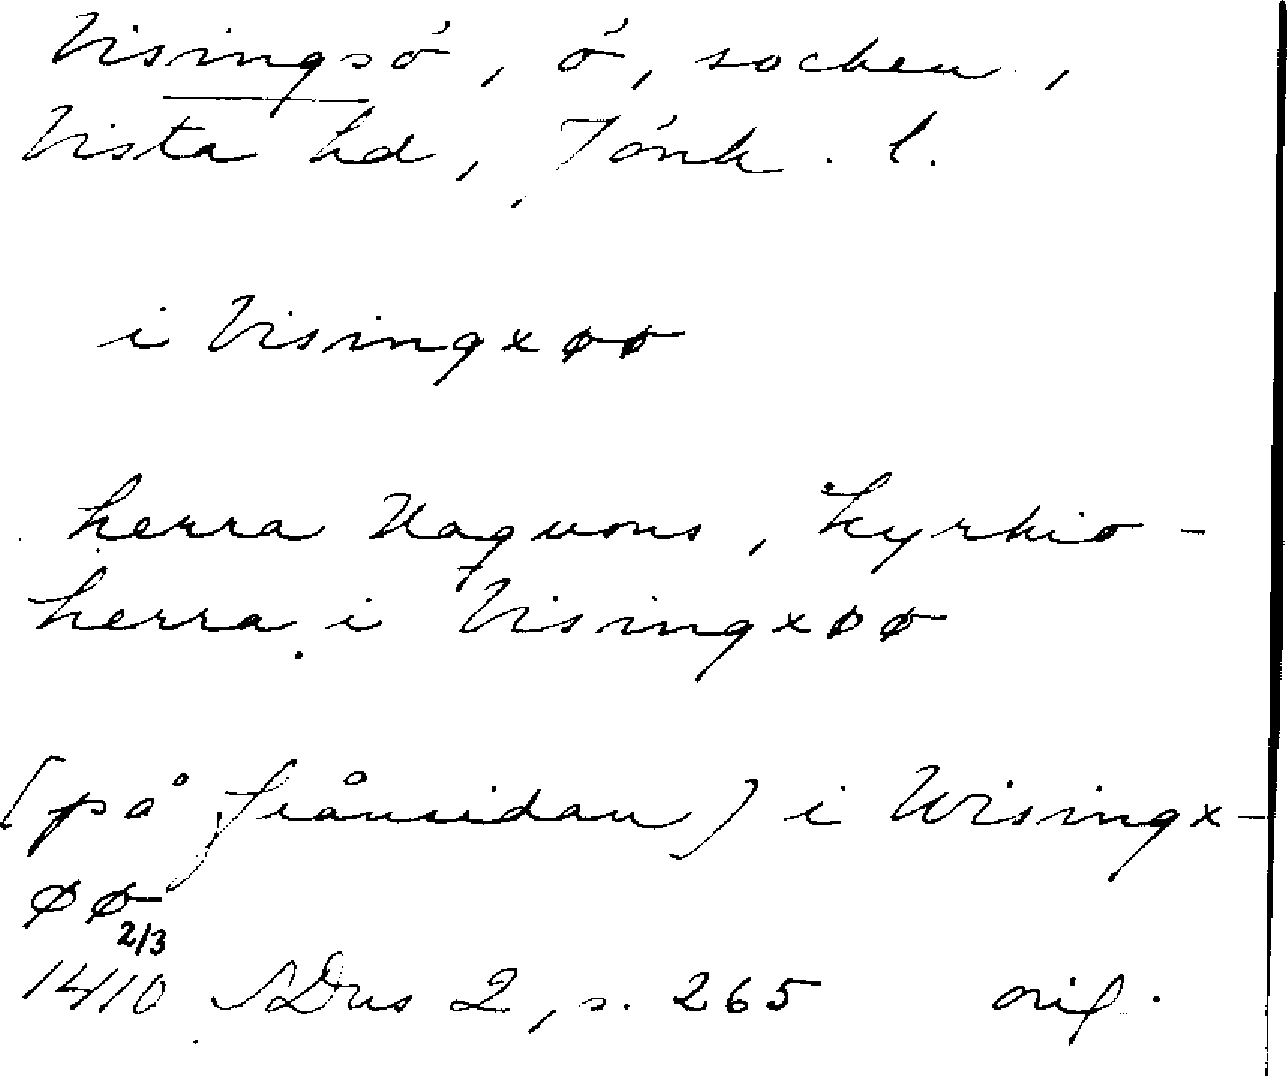 Visingsö, ö, socken,
Vista hd, Jönk. l.
i Visingxøø
herra Haquons, kyrkio-
herra i Visingxøø
(på frånsidan) i Wisingx-
øø
1410 2/3 SDns 2, s. 265 orig.